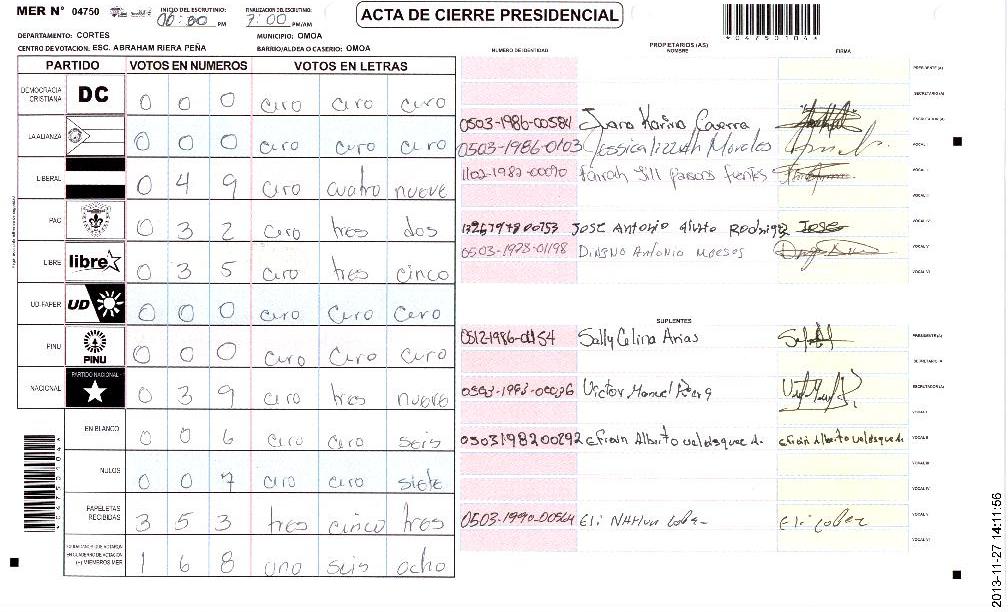 MER N° 04750 INICIO DEL ESCRUTINIO: PM FINALIZACION DEL ESCRUTINIO: 7:00 PM/AM ACTA DE CIERRE PRESIDENCIAL
*04750104*
DEPARTAMENTO: CORTES MUNICIPIO: OMOA
CENTRO DE VOTACION: ESC. ABRAHAM RIERA PEÑA BARRIO/ALDEA O CASERIO: OMOA
PARTIDO VOTOS EN NUMEROS VOTOS EN LETRAS
DEMOCRACIA CRISTIANA DC 0 0 0 cero cero cero
LA ALIANZA 0 0 0 cero cero cero
LIBERAL 0 4 9 cero cuatro nueve
PAC 0 3 2 cero tres dos
LIBRE libre 0 3 5 cero tres cinco
UD-FAPER UD 0 0 0 cero cero cero
PINU PINU 0 0 0 cero cero cero
NACIONAL PARTIDO NACIONAL 0 3 9 cero tres nueve
EN BLANCO 0 0 6 cero cero seis
NULOS 0 0 7 cero cero siete
PAPELETAS RECIBIDAS 3 5 3 tres cinco tres
CIUDADANOS QUE VOTARON EN CUADERNO DE VOTACION (+) MIEMBROS MER 1 6 8 uno seis ocho
NUMERO DE IDENTIDAD PROPIETARIOS (AS) NOMBRE FIRMA
PRESIDENTE (A)
SECRETARIO (A)
0503-1986-00584 Karina ESCRUTADOR (A)
0503-1986-0103 Jessica Lizzeth Morales VOCAL I
1102-1982-00090 Farrah Jill fuentes VOCAL II
VOCAL III
Jose Antonio Jose VOCAL IV
0503-1973-01198 Antonio VOCAL V
VOCAL VI
SUPLENTES
0512-1986- Sally Celina Arias PRESIDENTE (A)
SECRETARIO (A)
Victor Manuel ESCRUTADOR (A)
VOCAL I
0503198200292 Efrain Alberto Velasquez Efrain Alberto Velasquez VOCAL II
VOCAL III
VOCAL IV
0503-1990-00564 Eli Eli VOCAL V
VOCAL VI
2013-11-27 14:11:56